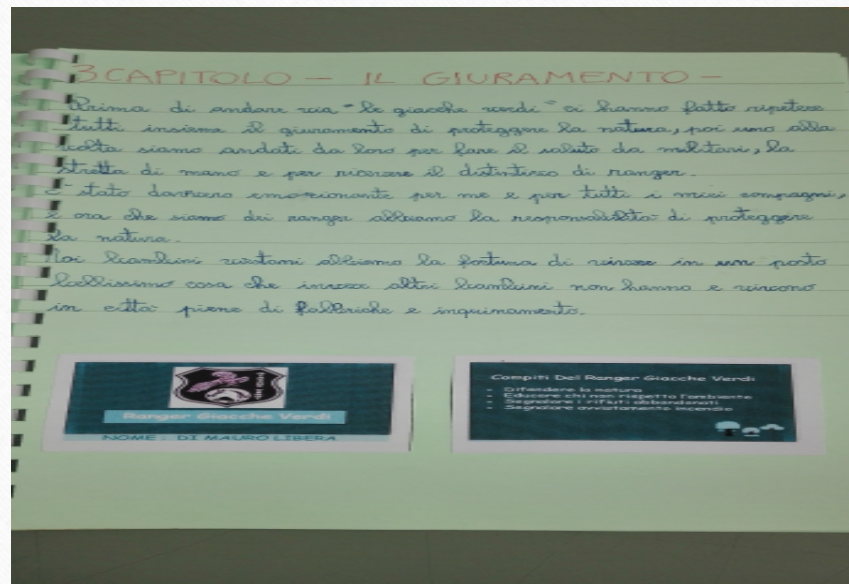 3 CAPITOLO - IL GIURAMENTO -
Prima di andare via "le giacche verdi" ci hanno fatto ripetere
tutti insieme il giuramento di proteggere la natura, poi uno alla
volta siamo andati da loro per fare il saluto da militari, la
stretta di mano e per ricevere il distintivo di ranger.
È stato davvero emozionante per me e per tutti i miei compagni,
e ora che siamo dei ranger abbiamo la responsabilità di proteggere
la natura.
Noi bambini viestani abbiamo la fortuna di vivere in un posto
bellissimo cosa che invece altri bambini non hanno e vivono
in città piene di fabbriche e inquinamento.
Ranger Giacche Verdi
NOME : DI MAURO LIBERA
Compiti Del Ranger Giacche Verdi
- Difendere la natura
- Educare chi non rispetta l'ambiente
- Segnalare i rifiuti abbandonati
- Segnalare avvistamento incendio